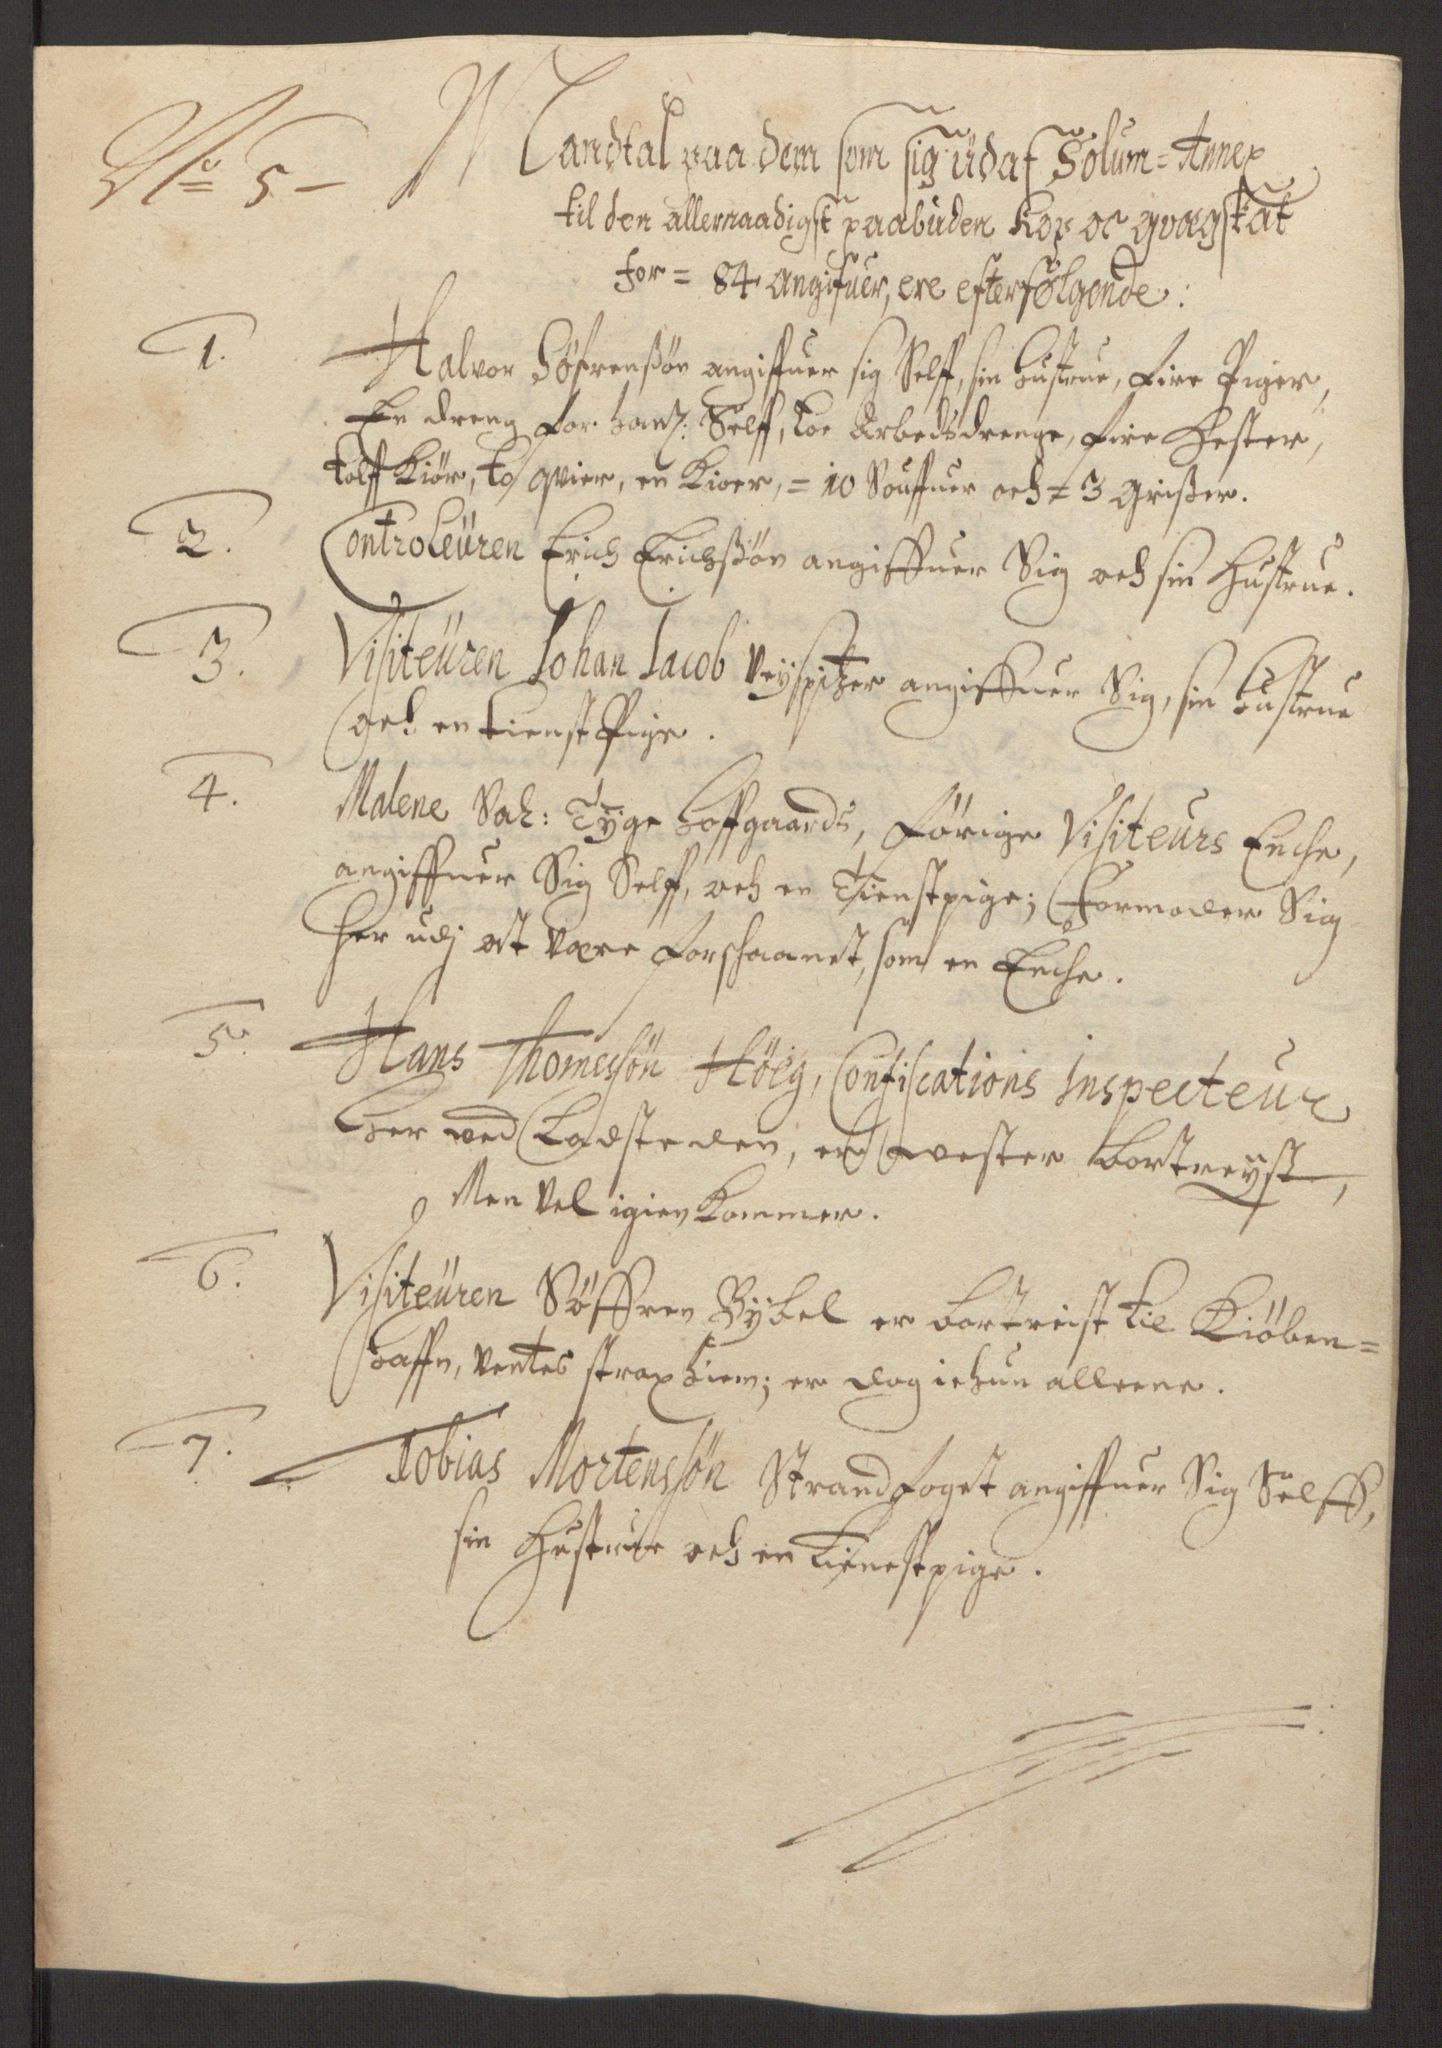 No 5
Mandtal paa dem som sig udaf Solum=Annex
til den allernaadigst paabuden Kop oc qvægskat
for = 84 angifuer, ere efterfølgende:
1. Halvor Söfrenßön angiffuer sig Self, sin hustrue, fire Piger,
En dreng for hanß: Self, toe Arbedsdrenge, fire Hester,
tolff Kiör, to qvier, en Kior, = 10 Souffuer och = 3 Grißer.
2. Controleüren Erich Erichßön angiffuer Sig och sin Hustrue.
3. Visiteüren Johan Jacob Veyspitzer angiffuer Sig, sin hustrue
och en tienst Pige.
4. Malene Sal: Tyge Hoffgaards, förige Visiteurs Enche,
angiffuer Sig Self, och en Tienstpige; Formoder Sig
her udj at være forschaanet, som en Enche.
5. Hans Thomessön Höeg, Confiscations Inspecteur
her ved Ladsteden, er vester bortreyst,
Men vel igien kommer.
6. Visiteüren Söffren Bybel er bortreist til Kiöben=
haffn, ventes strax hiem; er dog ichun alleene.
7. Tobias Mortenssön Strandfoget angiffuer Sig Self,
sin Hustrue och en tienestpige.